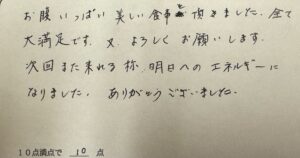 お腹いっぱい美しい食事を頂きました.全て
大満足です.又、よろしくお願いします.
次回また来れる様、明日へのエネルギーに
なりました. ありがとうございました.
10点満点で 10 点